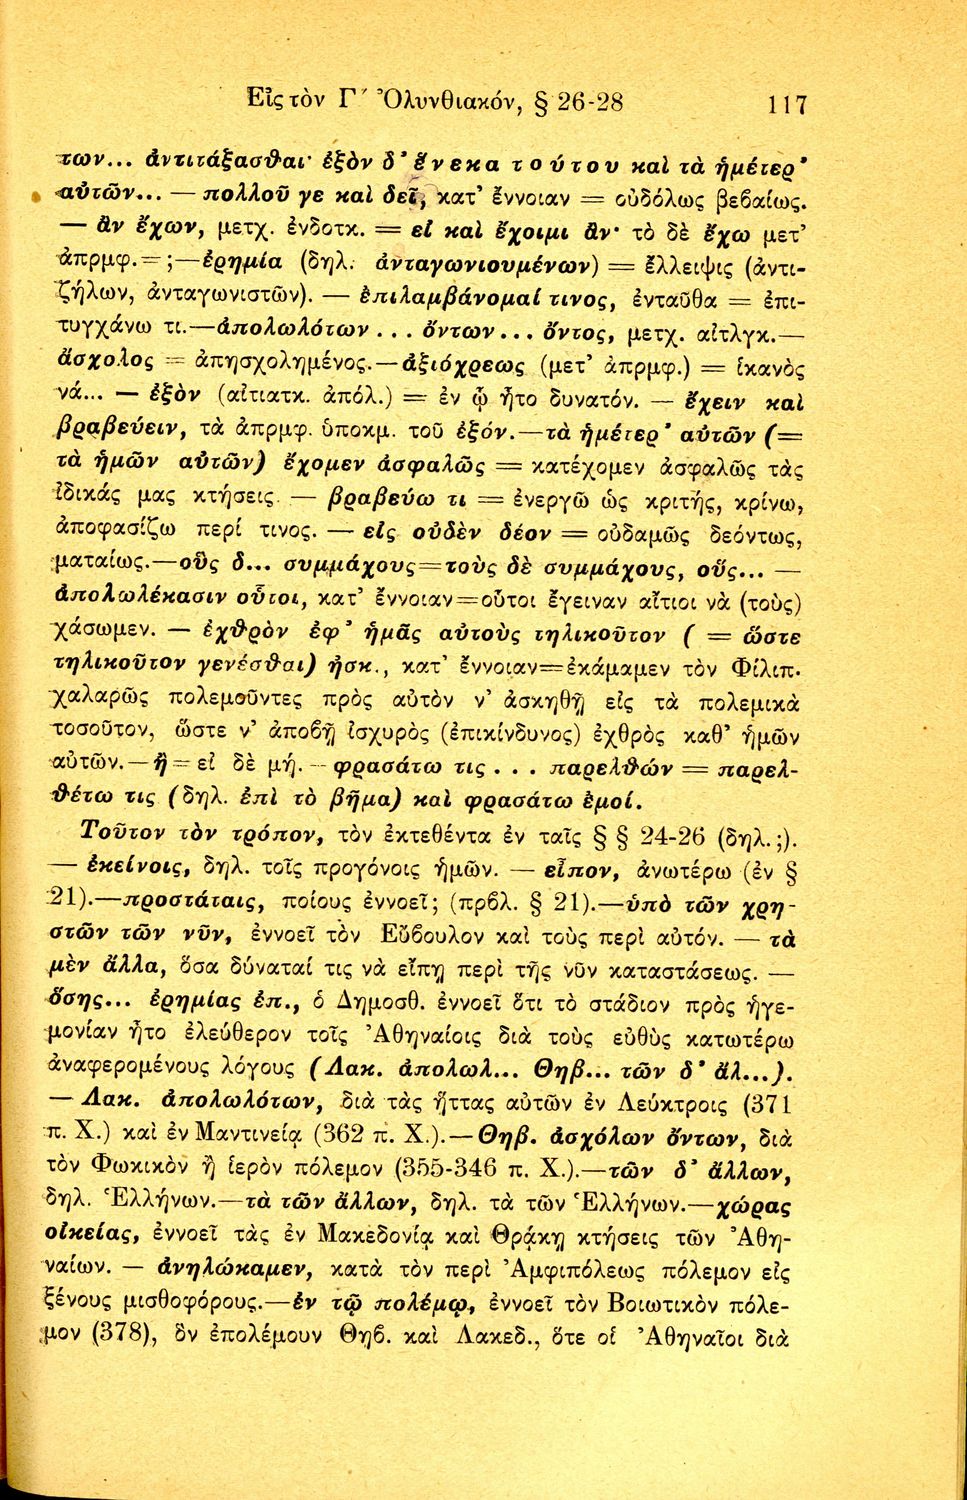 Εἰς τὸν Γ΄ Ὀλυνθιακόν, § 26-28 117
των... ἀντιτάξασθαι· ἐξὸν δ’ ἕνεκα τούτου καὶ τὰ ἡμέτερ’
αὐτῶν... — πολλοῦ γε καὶ δεῖ, κατ’ ἔννοιαν = οὐδόλως βεβαίως.
— ἂν ἔχων, μετχ. ἐνδοτκ. = εἰ καὶ ἔχοιμι ἄν· τὸ δὲ ἔχω μετ’
ἀπρμφ.= ;—ἐρημία (δηλ. ἀνταγωνιουμένων) = ἔλλειψις (ἀντι-
ζήλων, ἀνταγωνιστῶν). — ἐπιλαμβάνομαί τινος, ἐνταῦθα = ἐπι-
τυγχάνω τι.—ἀπολωλότων . . . ὄντων... ὄντος, μετχ. αἰτλγκ.—
ἄσχολος = ἀπησχολημένος.—ἀξιόχρεως (μετ’ ἀπρμφ.) = ἱκανὸς
νά... — ἐξὸν (αἰτιατκ. ἀπόλ.) = ἐν ᾧ ἦτο δυνατόν. — ἔχειν καὶ
βραβεύειν, τὰ ἀπρμφ. ὑποκμ. τοῦ ἐξόν.—τὰ ἡμέτερ’ αὐτῶν (=
τὰ ἡμῶν αὐτῶν) ἔχομεν ἀσφαλῶς = κατέχομεν ἀσφαλῶς τὰς
ἰδικάς μας κτήσεις — βραβεύω τι = ἐνεργῶ ὡς κριτής, κρίνω,
ἀποφασίζω περί τινος. — εἰς οὐδὲν δέον = οὐδαμῶς δεόντως,
ματαίως.—οὓς δ... συμμάχους=τοὺς δὲ συμμάχους, οὕς... —
ἀπολωλέκασιν οὗτοι, κατ’ ἔννοιαν=οὗτοι ἔγειναν αἴτιοι νὰ (τοὺς)
χάσωμεν. — ἐχθρὸν ἐφ’ ἡμᾶς αὐτοὺς τηλικοῦτον ( = ὥστε
τηλικοῦτον γενέσθαι) ἠσκ., κατ’ ἔννοιαν=ἐκάμαμεν τὸν Φίλιπ.
χαλαρῶς πολεμοῦντες πρὸς αὐτὸν ν’ ἀσκηθῇ εἰς τὰ πολεμικὰ
τοσοῦτον, ὥστε ν’ ἀποβῇ ἰσχυρὸς (ἐπικίνδυνος) ἐχθρὸς καθ’ ἡμῶν
αὐτῶν.—ἢ = εἰ δὲ μή. — φρασάτω τις . . . παρελθών = παρελ-
θέτω τις (δηλ. ἐπὶ τὸ βῆμα) καὶ φρασάτω ἐμοί.
Τοῦτον τὸν τρόπον, τὸν ἐκτεθέντα ἐν ταῖς § § 24-26 (δηλ. ;).
— ἐκείνοις, δηλ. τοῖς προγόνοις ἡμῶν. — εἶπον, ἀνωτέρω (ἐν §
21).—προστάταις, ποίους ἐννοεῖ; (πρβλ. § 21).—ὑπὸ τῶν χρη-
στῶν τῶν νῦν, ἐννοεῖ τὸν Εὔβουλον καὶ τοὺς περὶ αὐτόν. — τὰ
μὲν ἄλλα, ὅσα δύναταί τις νὰ εἴπῃ περὶ τῆς νῦν καταστάσεως. —
ὅσης... ἐρημίας ἐπ., ὁ Δημοσθ. ἐννοεῖ ὅτι τὸ στάδιον πρὸς ἡγε-
μονίαν ἦτο ἐλεύθερον τοῖς Ἀθηναίοις διὰ τοὺς εὐθὺς κατωτέρω
ἀναφερομένους λόγους (Λακ. ἀπολωλ... Θηβ... τῶν δ’ ἄλ...).
— Λακ. ἀπολωλότων, διὰ τὰς ἥττας αὐτῶν ἐν Λεύκτροις (371
π. Χ.) καὶ ἐν Μαντινείᾳ (362 π. Χ.).—Θηβ. ἀσχόλων ὄντων, διὰ
τὸν Φωκικὸν ἢ ἱερὸν πόλεμον (355-346 π. Χ.).—τῶν δ’ ἄλλων,
δηλ. Ἑλλήνων.—τὰ τῶν ἄλλων, δηλ. τὰ τῶν Ἑλλήνων.—χώρας
οἰκείας, ἐννοεῖ τὰς ἐν Μακεδονίᾳ καὶ Θρᾴκῃ κτήσεις τῶν Ἀθη-
ναίων. — ἀνηλώκαμεν, κατὰ τὸν περὶ Ἀμφιπόλεως πόλεμον εἰς
ξένους μισθοφόρους.—ἐν τῷ πολέμῳ, ἐννοεῖ τὸν Βοιωτικὸν πόλε-
μον (378), ὃν ἐπολέμουν Θηβ. καὶ Λακεδ., ὅτε οἱ Ἀθηναῖοι διὰ